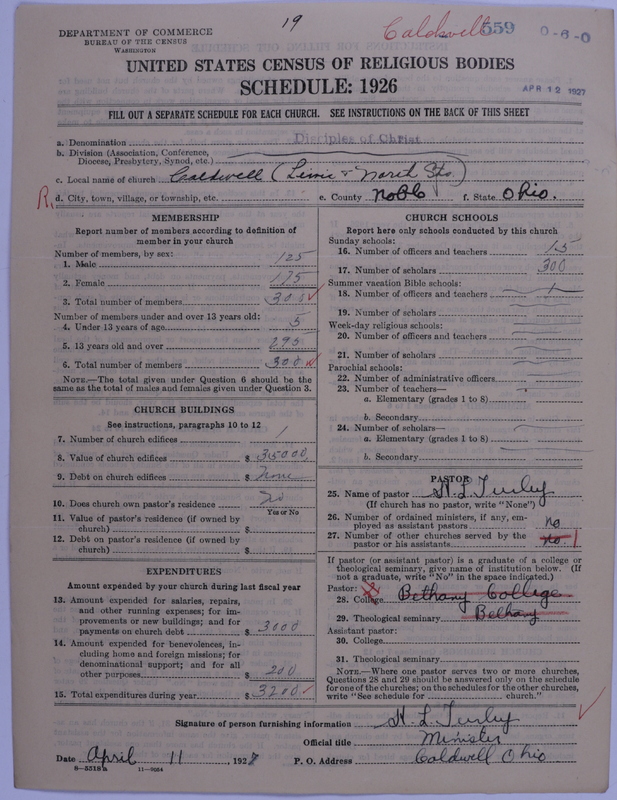 19
Caldwell 559
0-6-0
DEPARTMENT OF COMMERCE
BUREAU OF THE CENSUS
WASHINGTON
UNITED STATES CENSUS OF RELIGIOUS BODIES
SCHEDULE: 1926
APR 12 1927
FILL OUT A SEPARATE SCHEDULE FOR EACH CHURCH. SEE INSTRUCTIONS ON THE BACK OF THIS SHEET
a. Denomination Disciples of Christ
b. Division (Association, Conference,
Diocese, Presbytery, Synod, etc.)
c. Local name of church Caldwell ( + North Sts)
R. d. City, town, village, or township, etc. e. County Noble f. State Ohio.
MEMBERSHIP
Report number of members according to definition of
member in your church
Number of members, by sex:
1. Male 125
2. Female 175
3. Total number of members 300
Number of members under and over 13 years old:
4. Under 13 years of age 5
5. 13 years old and over 295
6. Total number of members 300
NOTE.—The total given under Question 6 should be the
same as the total of males and females given under Question 3.
CHURCH BUILDINGS
See instructions, paragraphs 10 to 12
7. Number of church edifices 1
8. Value of church edifices $ 35000
9. Debt on church edifices $ None
10. Does church own pastor's residence No
Yes or No
11. Value of pastor's residence (if owned by
church) $
12. Debt on pastor's residence (if owned by
church) $
EXPENDITURES
Amount expended by your church during last fiscal year
13. Amount expended for salaries, repairs,
and other running expenses; for im-
provements or new buildings; and for
payments on church debt $ 3000
14. Amount expended for benevolences, in-
cluding home and foreign missions; for
denominational support; and for all
other purposes $ 200
15. Total expenditures during year $ 3200
CHURCH SCHOOLS
Report here only schools conducted by this church
Sunday schools:
16. Number of officers and teachers 15
17. Number of scholars 300
Summer vacation Bible schools:
18. Number of officers and teachers
19. Number of scholars
Week-day religious schools:
20. Number of officers and teachers
21. Number of scholars
Parochial schools:
22. Number of administrative officers
23. Number of teachers—
a. Elementary (grades 1 to 8)
b. Secondary
24. Number of scholars—
a. Elementary (grades 1 to 8)
b. Secondary
PASTOR
25. Name of pastor H. L. Turley
(If church has no pastor, write "None")
26. Number of ordained ministers, if any, em-
ployed as assistant pastors no
27. Number of other churches served by the
pastor or his assistants no 1
If pastor (or assistant pastor) is a graduate of a college or
theological seminary, give name of institution below. (If
not a graduate, write "No" in the space indicated.)
Pastor:
28. College Bethany College
29. Theological seminary Bethany
Assistant pastor:
30. College
31. Theological seminary
NOTE.—Where one pastor serves two or more churches,
Questions 28 and 29 should be answered only on the schedule
for one of the churches; on the schedules for the other churches,
write "See schedule for church."
Signature of person furnishing information H. L. Turley
Official title Minister
Date April 11, 1927 P. O. Address Caldwell Ohio
8-5518a 11-9054